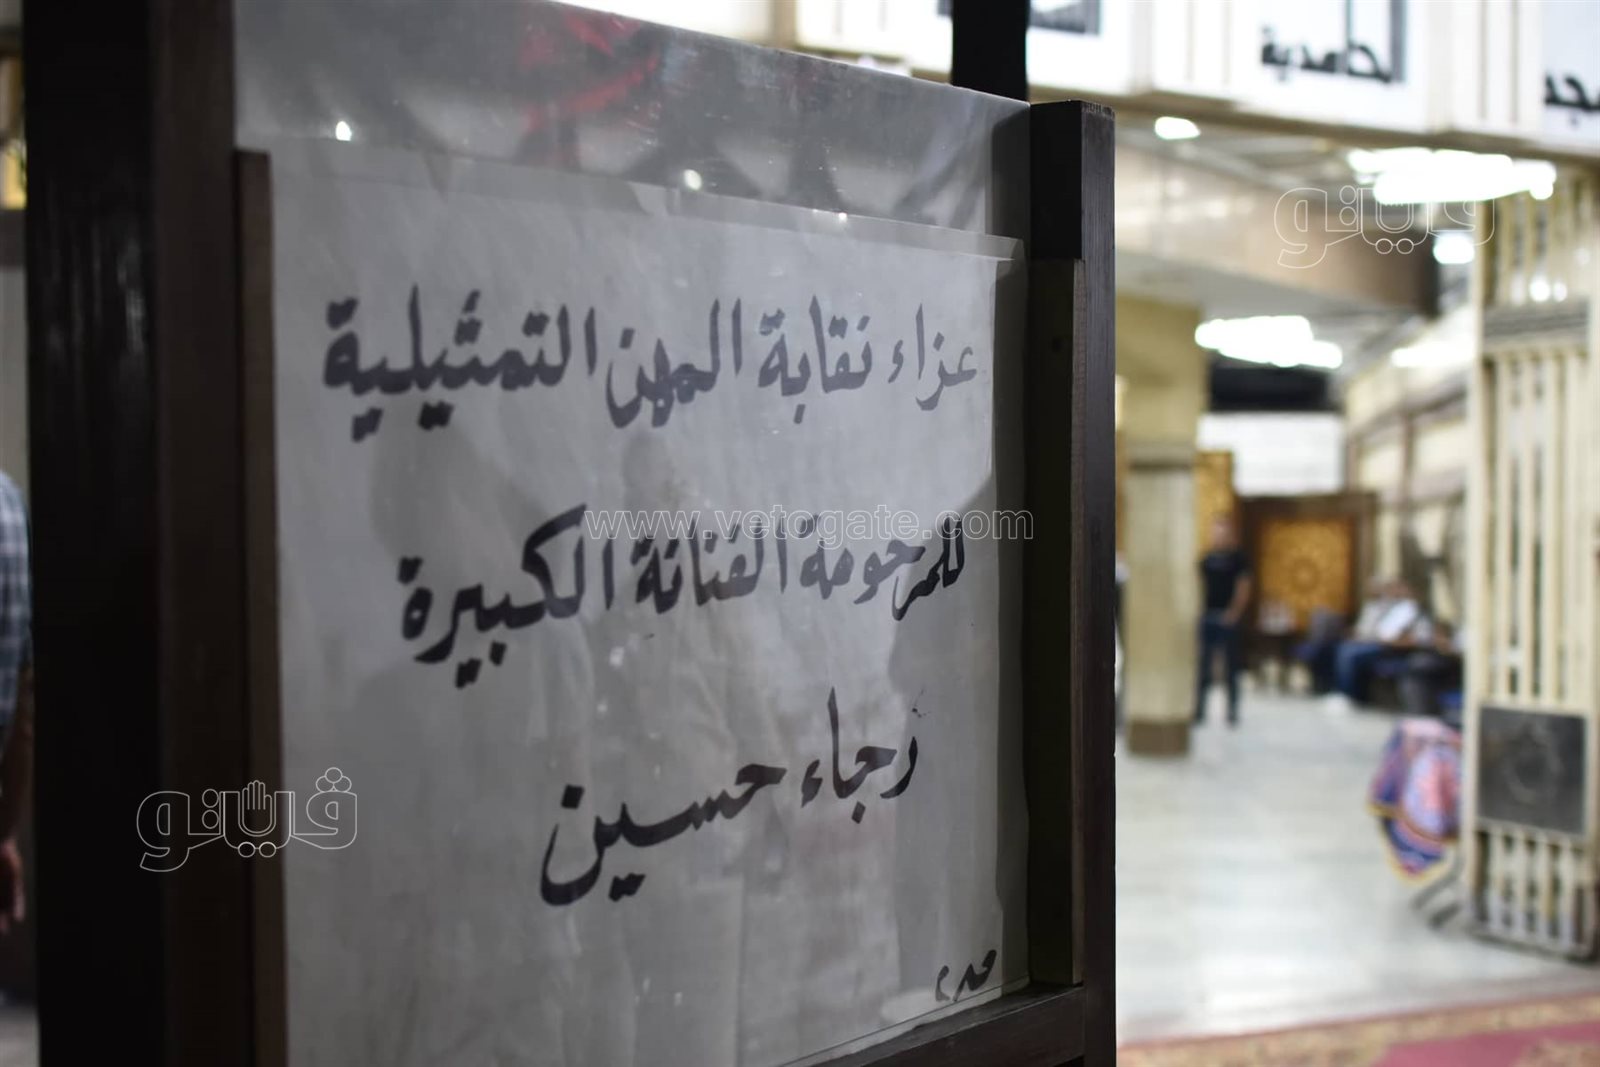 عزاء نقابة المهن التمثيلية
للمرحومة الفنانة الكبيرة
رجاء حسين
www.vetogate.com
فيتو
فيتو